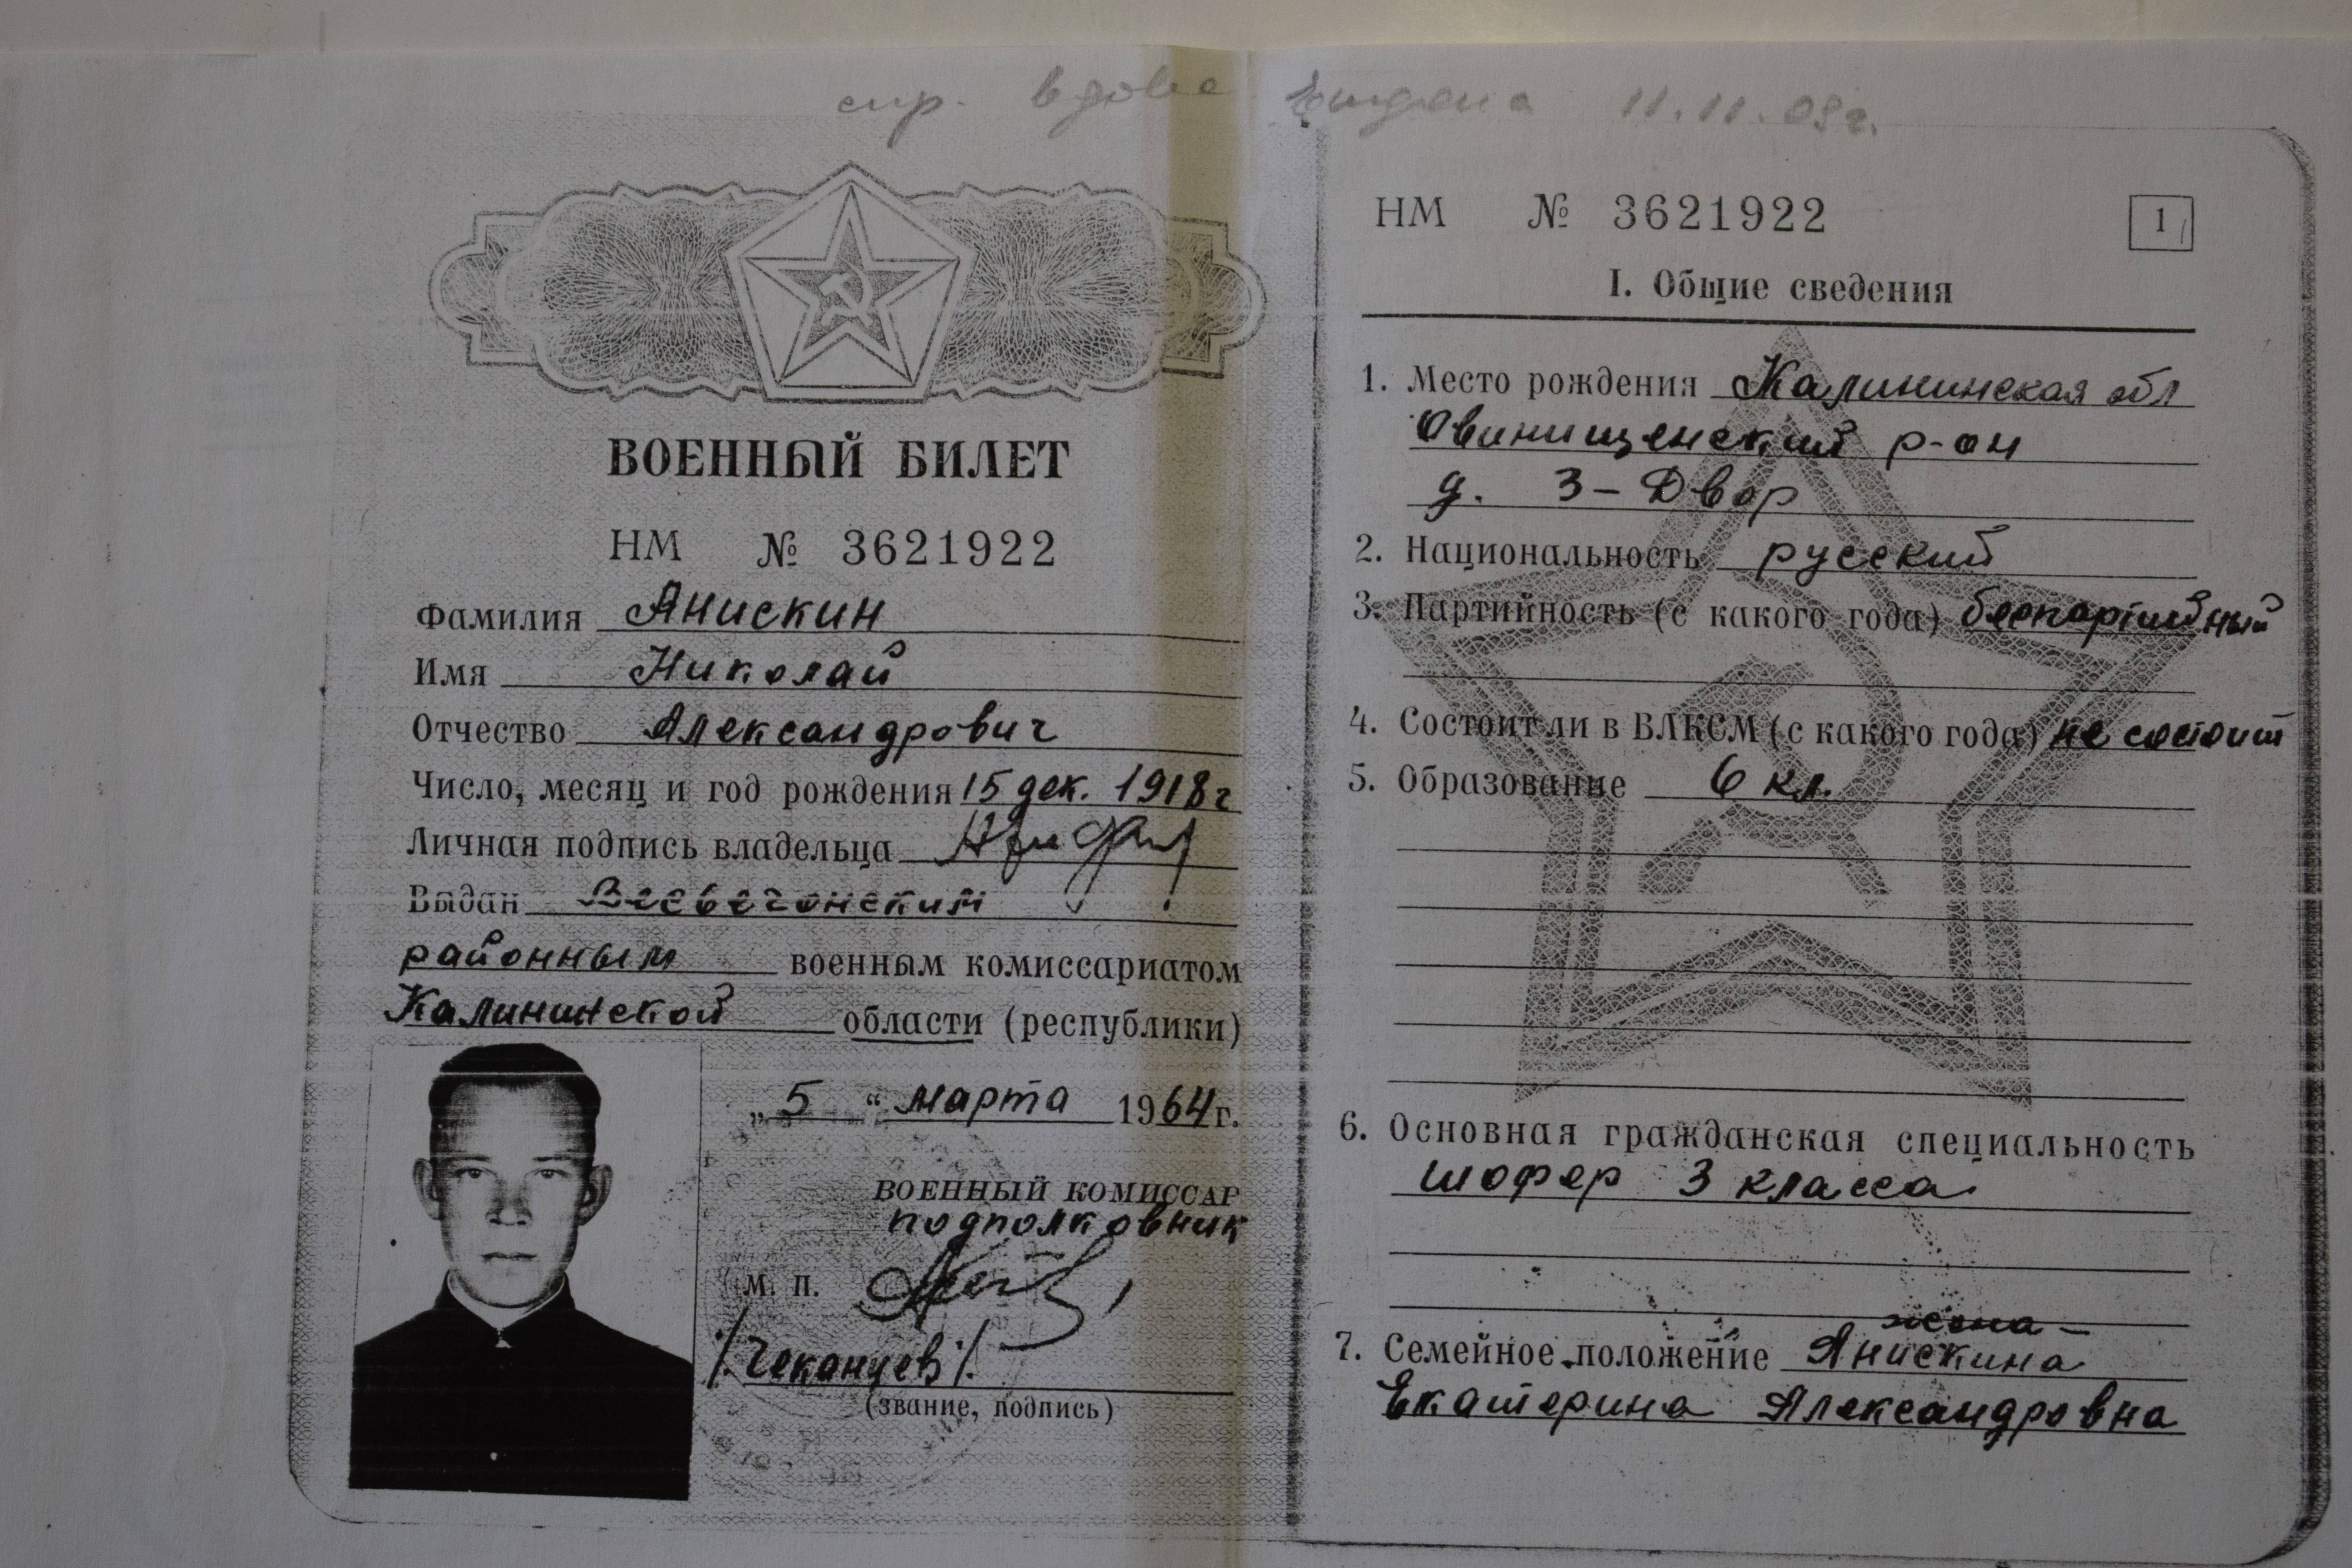 спр. вдове выдана 11.11.03г.
ВОЕННЫЙ БИЛЕТ
НМ № 3621922
Фамилия Анискин
Имя Николай
Отчество Александрович
Число, месяц и год рождения 15 дек. 1918г
Личная подпись владельца
Выдан Весьегонским
районным военным комиссариатом
Калининской области (республики)
„5“ марта 1964г.
ВОЕННЫЙ КОМИССАР
подполковник
М. П.
/Чеканцев/.
(звание, подпись)
НМ № 3621922
1
I. Общие сведения
1. Место рождения Калининская обл
Овинищенский р-он
д. 3-Двор
2. Национальность русский
3. Партийность (с какого года) беспартийный
4. Состоит ли в ВЛКСМ (с какого года) не состоит
5. Образование 6 кл.
6. Основная гражданская специальность
шофер 3 класса
жена -
7. Семейное положение Анискина
Екатерина Александровна